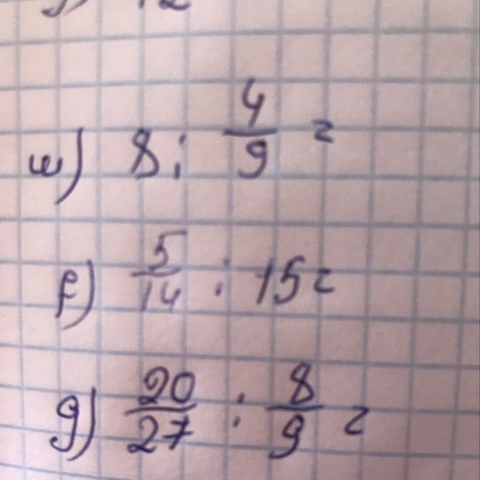 12
e) 8 : 4/9 =
f) 5/14 : 15 =
g) 20/27 : 8/9 =